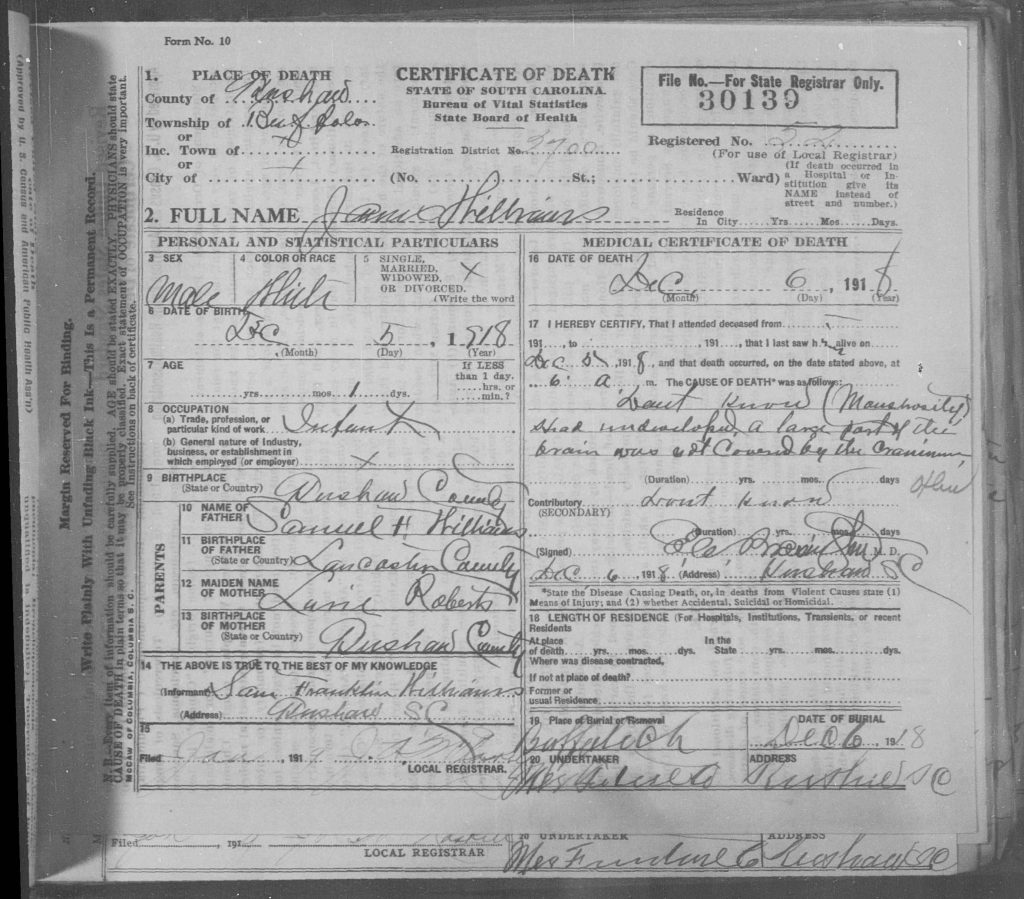 Form No. 10
1. PLACE OF DEATH
County of Kershaw
Township of Buffalo
or
Inc. Town of
or
City of
CERTIFICATE OF DEATH
STATE OF SOUTH CAROLINA.
Bureau of Vital Statistics
State Board of Health
Registration District No. 2700
(No. St.; Ward)
File No.—For State Registrar Only.
30139
Registered No. 52
(For use of Local Registrar)
(If death occurred in
a Hospital or In-
stitution give its
NAME instead of
street and number.)
2. FULL NAME Williams
Residence
In City Yrs. Mos. Days.
PERSONAL AND STATISTICAL PARTICULARS
3 SEX
Male
4 COLOR OR RACE
White
5 SINGLE,
MARRIED,
WIDOWED,
OR DIVORCED.
(Write the word
X
6 DATE OF BIRTH
Dec 5, 1918
(Month) (Day) (Year)
7 AGE
yrs. mos. 1 dys.
If LESS
than 1 day.
hrs. or
min.?
8 OCCUPATION
(a) Trade, profession, or
particular kind of work Infant
(b) General nature of Industry,
business, or establishment in
which employed (or employer) X
9 BIRTHPLACE
(State or Country) Kershaw County
PARENTS
10 NAME OF
FATHER Samuel H Williams
11 BIRTHPLACE
OF FATHER
(State or Country) Lancaster County
12 MAIDEN NAME
OF MOTHER Roberts
13 BIRTHPLACE
OF MOTHER
(State or Country) Kershaw County
14 THE ABOVE IS TRUE TO THE BEST OF MY KNOWLEDGE
(Informant) Sam Franklin Williams
(Address) Kershaw S C
15
Filed Jan 191
LOCAL REGISTRAR.
MEDICAL CERTIFICATE OF DEATH
16 DATE OF DEATH
Dec 6, 1918
(Month) (Day) (Year)
17 I HEREBY CERTIFY, That I attended deceased from
191, to, 191, that I last saw h alive on
Dec 5, 1918, and that death occurred, on the date stated above, at
6 A m. The CAUSE OF DEATH* was as follows:
Dont Know (Monstrosity)
Head undeveloped, a large part of the
brain was not Covered by the Cranium,
(Duration) yrs. mos. days
Contributory Dont Know
(SECONDARY)
(Duration) yrs. mos. days
(Signed) M. D.
Dec 6, 1918 (Address) Kershaw S C
*State the Disease Causing Death, or, in deaths from Violent Causes state (1)
Means of Injury; and (2) whether Accidental, Suicidal or Homicidal.
18 LENGTH OF RESIDENCE (For Hospitals, Institutions, Transients, or recent
Residents
At place In the
of death yrs. mos. dys. State yrs. mos. dys.
Where was disease contracted,
If not at place of death?
Former or
usual Residence
19. Place of Burial or Removal
DATE OF BURIAL
Dec 6 1918
20 UNDERTAKER
ADDRESS
Kershaw S C
Margin Reserved For Binding.
Write Plainly With Unfading Black Ink—This Is a Permanent Record.
N. B.—Every item of information should be carefully supplied. AGE should be stated EXACTLY. PHYSICIANS should state
CAUSE OF DEATH in plain terms so that it may be properly classified. Exact statement of OCCUPATION is very important.
See Instructions on back of certificate.
McCAW OF COLUMBIA, COLUMBIA S. C.
(Approved by U. S. Census and American Public Health Ass'n)
Filed, 191
LOCAL REGISTRAR
20 UNDERTAKER
ADDRESS
Furniture Co Kershaw SC